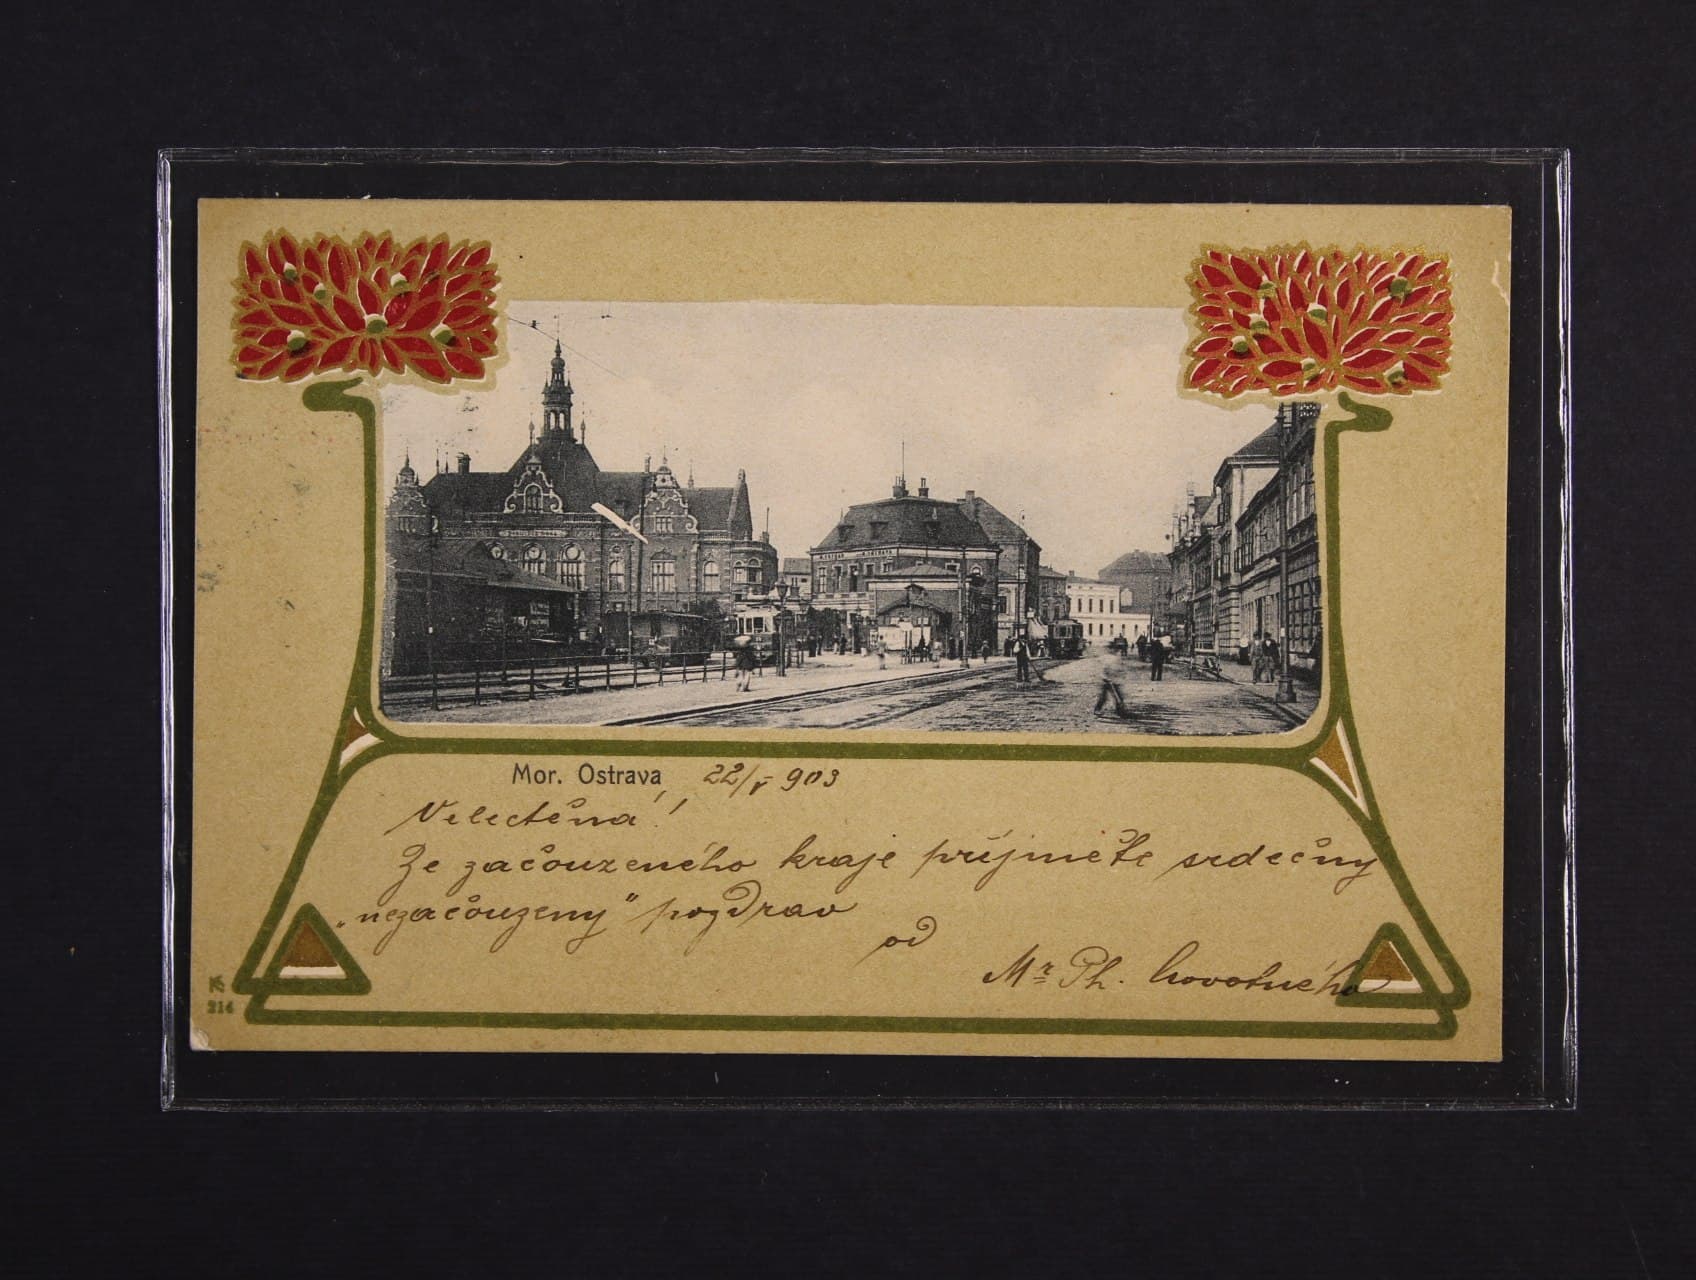 Mor. Ostrava, 22/V 903
Velectěná!
Ze začouzeného kraje přijměte srdečný
„nezačouzený" pozdrav
od
Mr Ph. Novotného
214